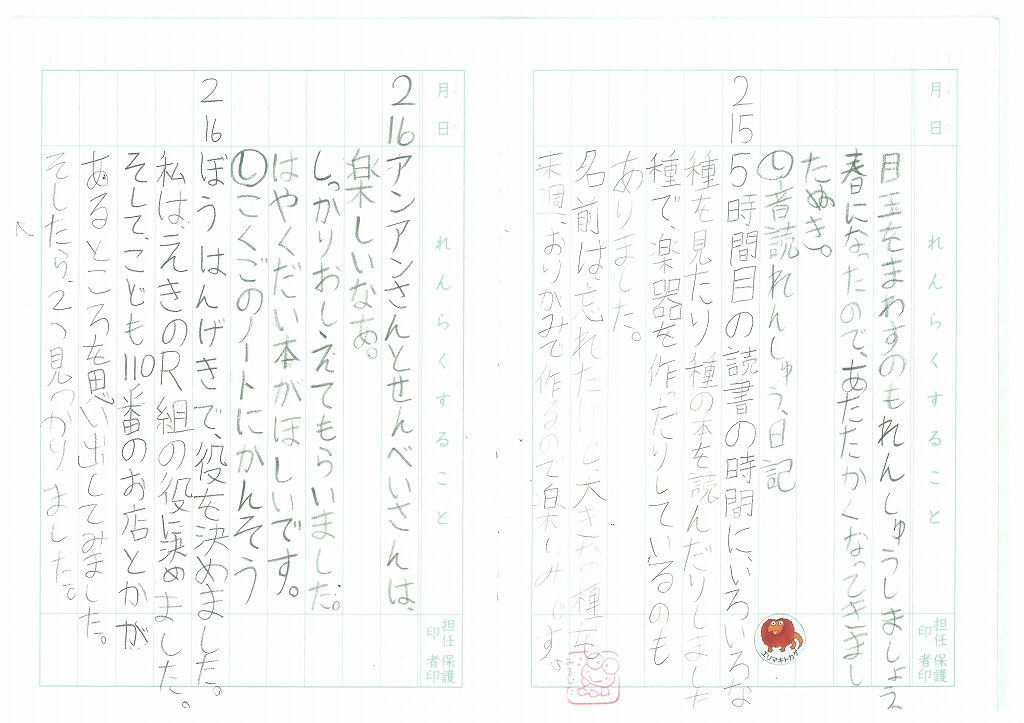 月 日
れんらくすること
担任印
保護者印
目玉をまわすのもれんしゅうしましょえ
春になったので、あたたかくなってきまし
たぬき。
し音読れんしゅう、日記
2 15 5時間目の読書の時間に、いろいろな
種を見たり種の本を読んだりしました
種で、楽器を作ったりしているのも
ありました。
名前は、忘れたけど、大きな種を。
来週、おりがみで作るので楽しみです。
エリマキトカゲ
みました
月 日
れんらくすること
担任印
保護者印
2 16 アンアンさんとせんべいさんは、
楽しいなあ。
しっかりおしえてもらいました。
はやくだい本がほしいです。
しこくごのノートにかんそう
2 16 ぼうはんげきで、役を決めました。
私は、えきのR組の役に決めました。
そして、こども110番のお店とかが
あるところを思い出してみました。
そしたら、2つ見つかりました。